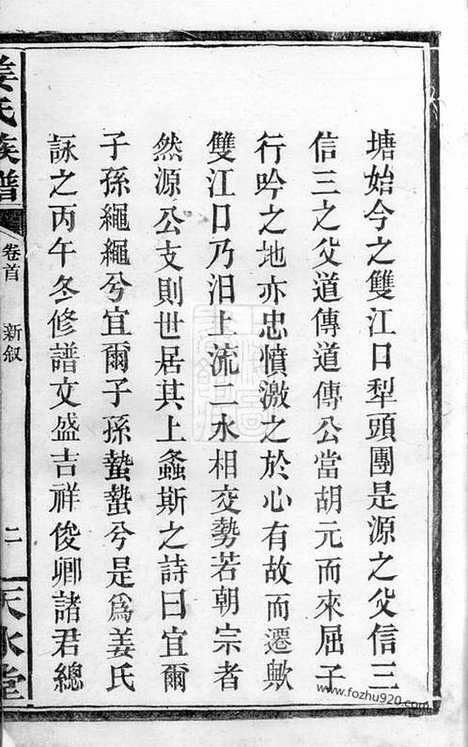 塘始今之雙江口犁頭團是源之父信三
信三之父道傳道傳公當胡元而來屈子
行吟之地亦忠憤激之於心有故而遷歟
雙江口乃汨上流二水相交勢若朝宗者
然源公支則世居其上螽斯之詩曰宜爾
子孫繩繩兮宜爾子孫蟄蟄兮是爲姜氏
詠之丙午冬修譜文盛吉祥俊卿諸君總
姜氏族譜
卷首 新敘
二
天水堂
www.fozhu920.com